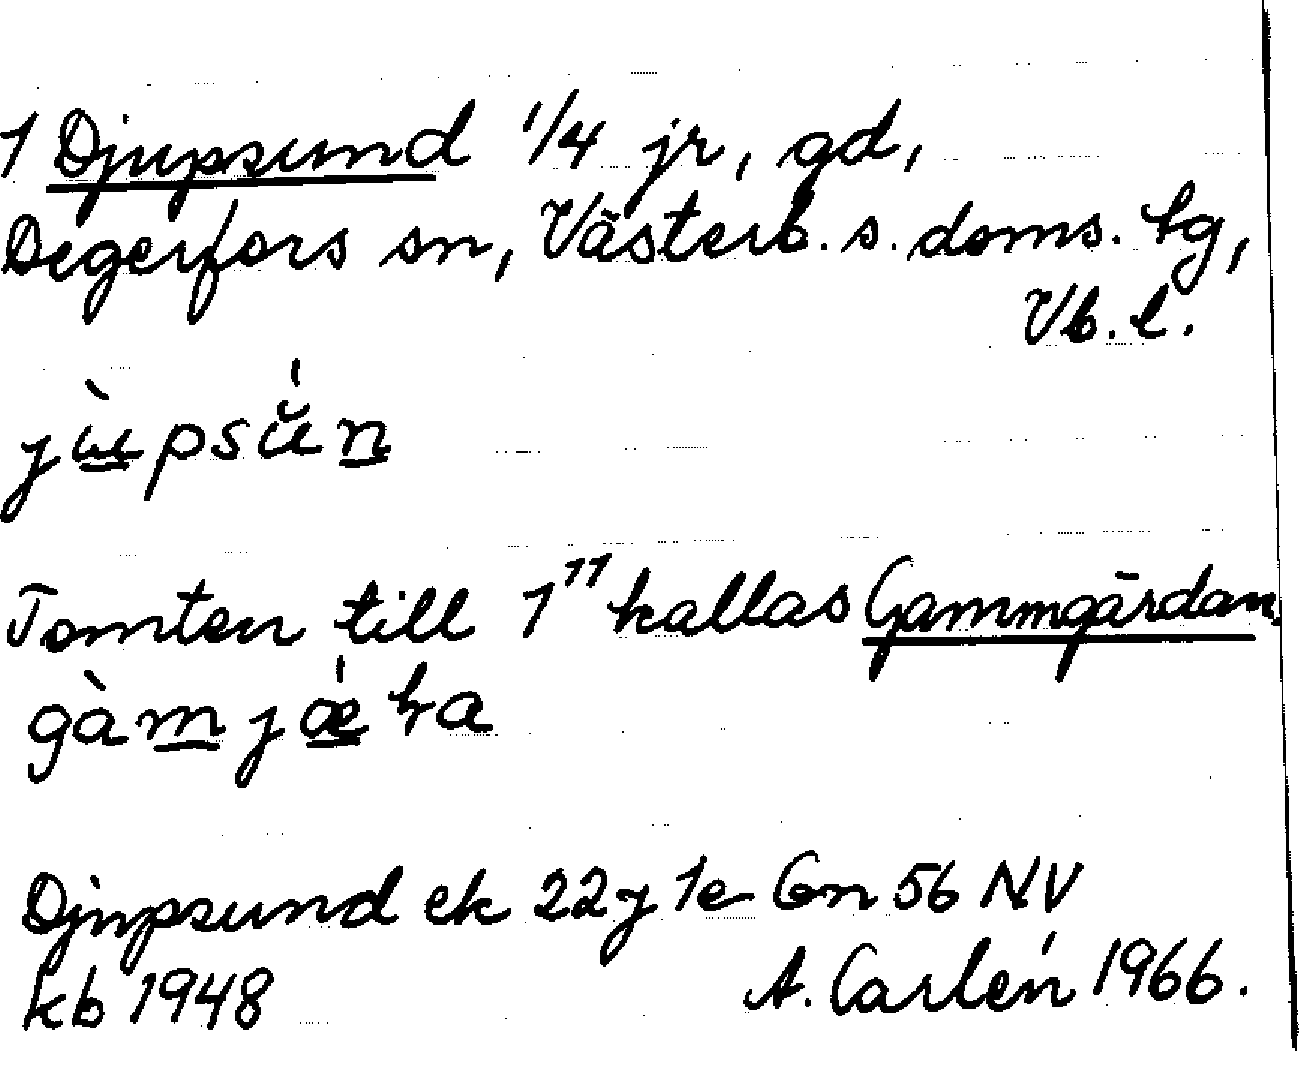 1 Djupsund 1/4 jr, gd,
Degerfors sn, Västerb. s. doms. tg,
Vb. l.
jùpsŭ́n
Tomten till 1" kallas Gammgårdan
gàmjǽra
Djupsund ek 22J 1e Gn 56 NV
kb 1948 A. Carlén 1966.